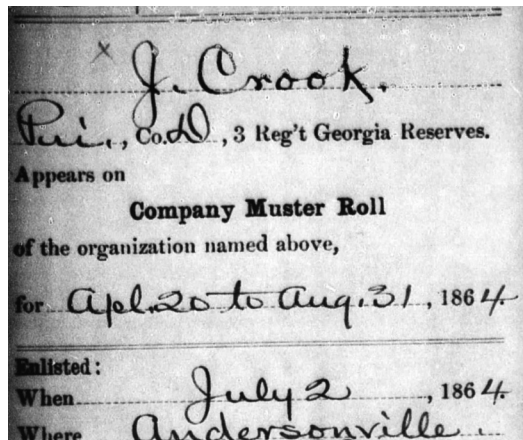 J. Crook.
Pri., Co. D, 3 Reg't Georgia Reserves.
Appears on
Company Muster Roll
of the organization named above,
for Apl. 20 to Aug. 31, 1864.
Enlisted:
When July 2, 1864.
Where Andersonville.